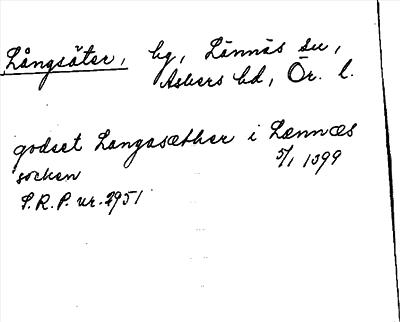 Långsäter, by, Lännäs sn,
Askers hd, Ör. l.
godset Langasæther i Lænnæs
socken 5/1 1399
S.R.P. nr. 2951